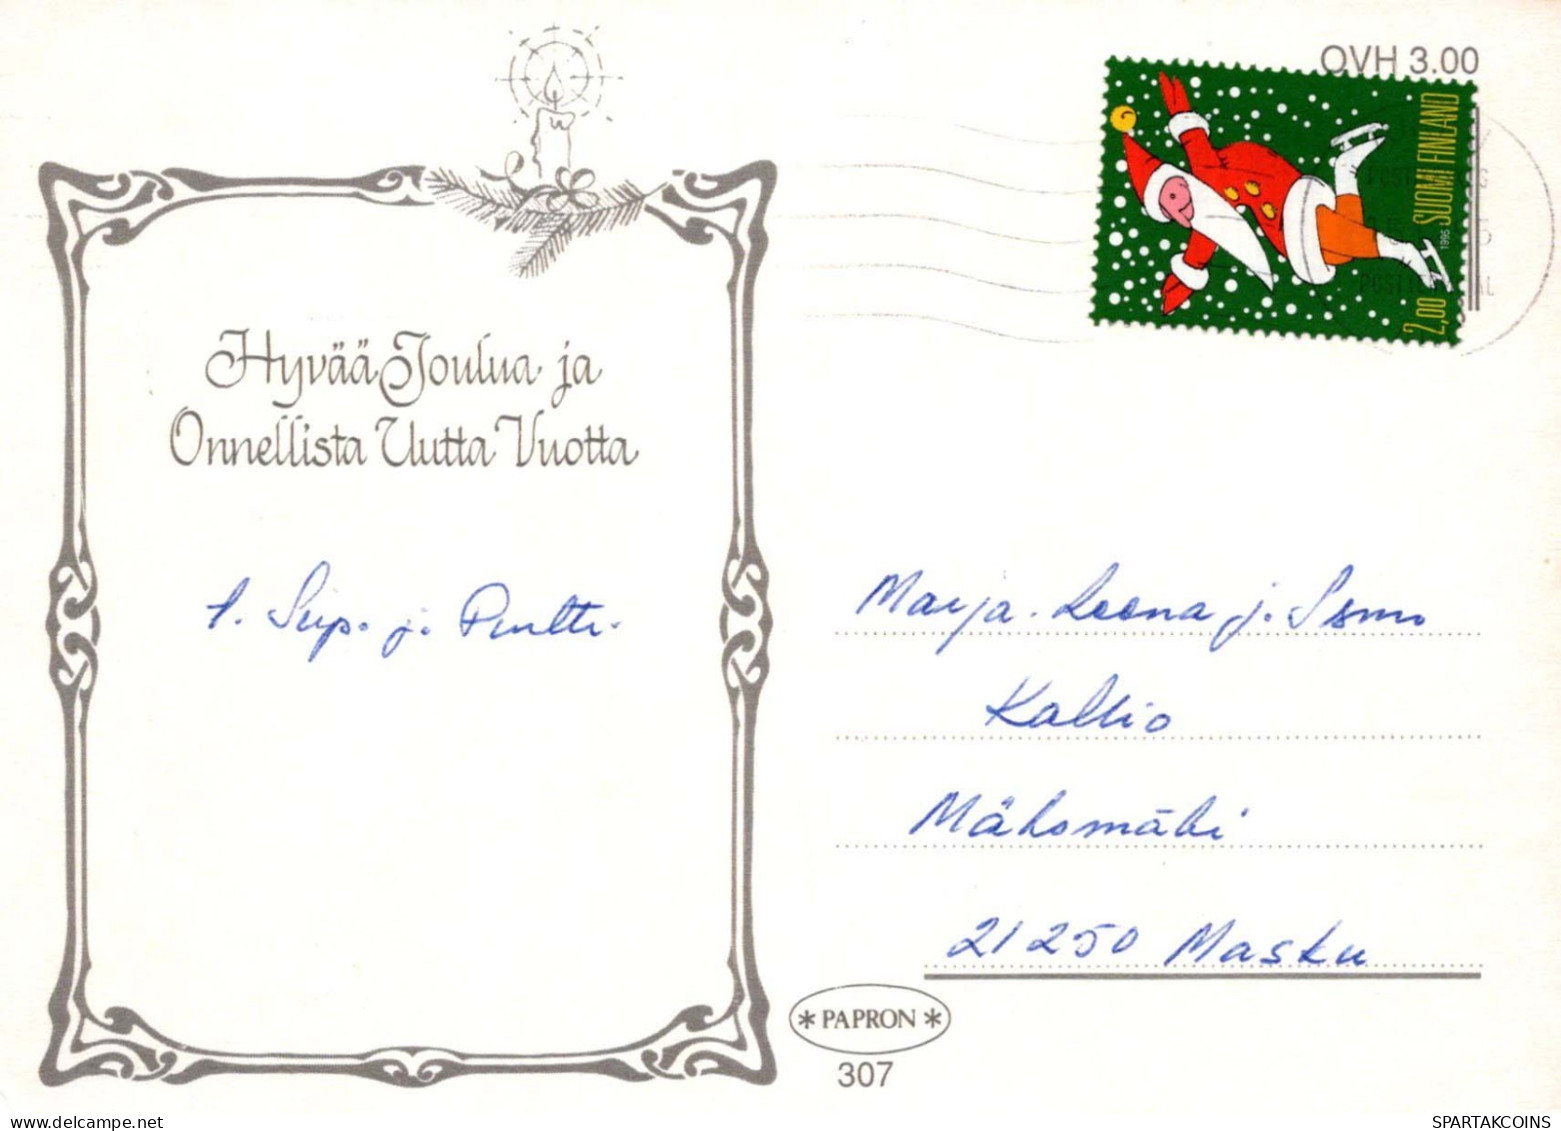 OVH 3.00
SUOMI FINLAND
1995
2,00
Hyvää Joulua ja
Onnellista Uutta Vuotta
t. Seipo ja Pentti
Marja-Leena j. Ismo
Kallio
Mähomäki
21250 Masku
* PAPRON *
307
SPARTAKCOINS